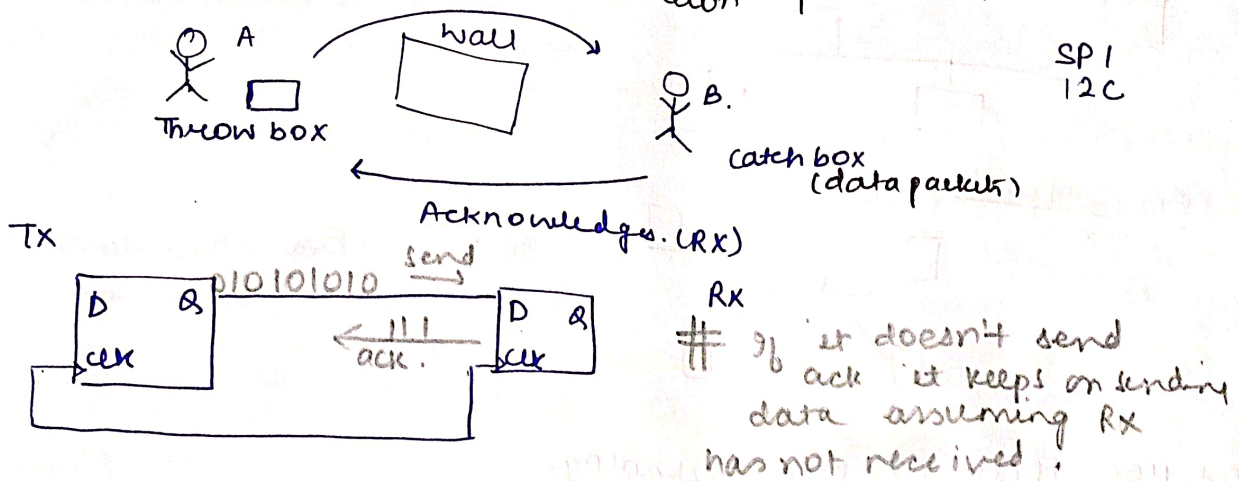 A
wall
SPI
I2C
B.
Throw box
catch box
(data packets)
Acknowledges. (RX)
Tx
send
010101010
D Q
D Q
Rx
111
ack.
clk
clk
# If it doesn't send
ack it keeps on sending
data assuming Rx
has not received.